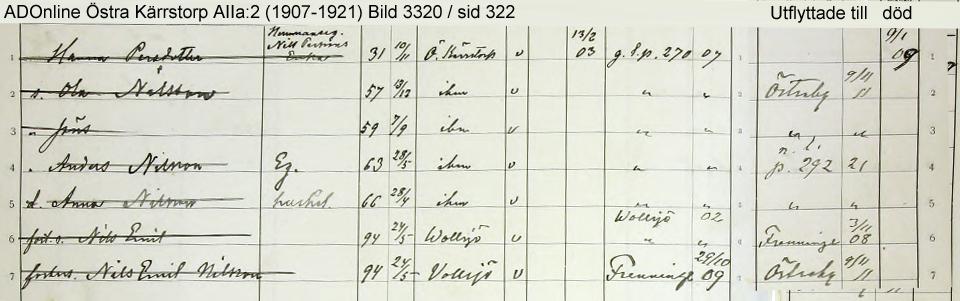 ADOnline Östra Kärrstorp AIIa:2 (1907-1921) Bild 3320 / sid 322 Utflyttade till död
1 Hanna Persdotter Hemmanseg. Nils Persons Enka 31 10/11 Ö. Kärrstorp v 13/2 03 g. l. p. 270 07 1 9/1 09
2 s. Ola Nilsson 57 13/12 ibm v " " 2 Östraby 9/11 11 2
3 " Jöns 59 7/9 ibm v " " 3 " " 3
4 " Anders Nilsson Eg. 63 28/5 ibm v " " 4 n. l. p. 292 21 4
5 d. Anna Nilsson hushål. 66 28/4 ibm v " " 5 " " 5
6 fost. s. Nils Emil 94 24/5 Wollsjö v Wollsjö 02 " " Frenninge 3/11 08 6
7 fosters. Nils Emil Nilsson 94 24/5 Vollsjö v Frenninge 29/10 09 Östraby 9/11 11 7